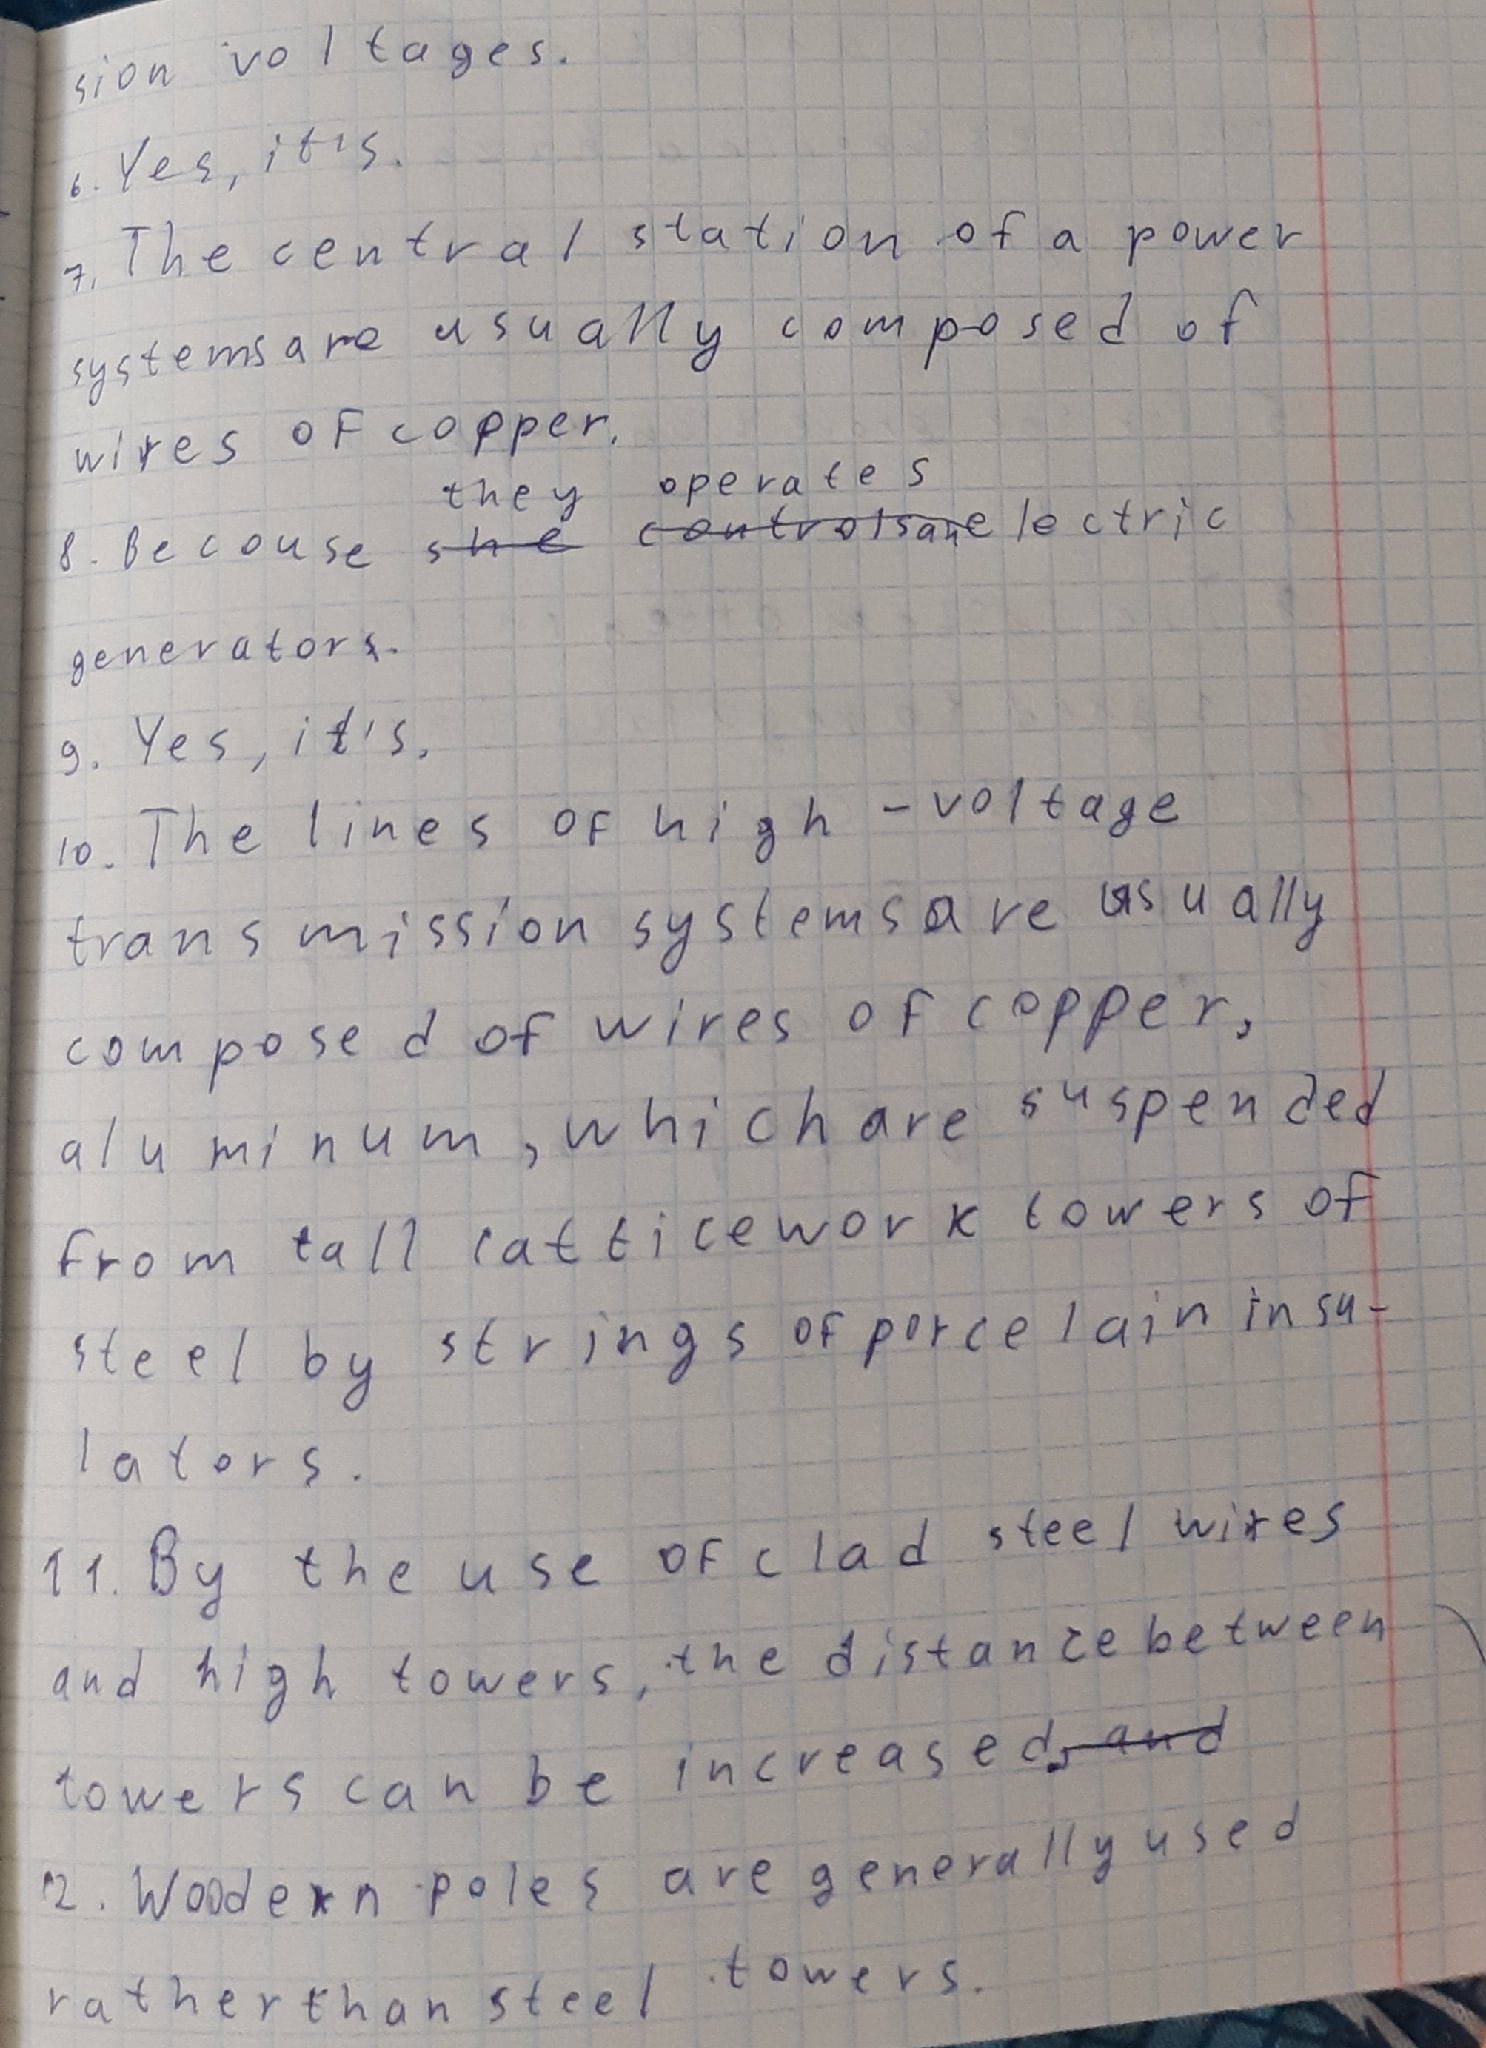 sion voltages.
6. Yes, it's.
7. The central station of a power
systems are usually composed of
wires of copper.
they operates
8. Becouse she controls an electric
generators.
9. Yes, it's.
10. The lines of high-voltage
transmission systems are usually
composed of wires of copper,
aluminum, which are suspended
from tall latticework towers of
steel by strings of porcelain insu-
lators.
11. By the use of clad steel wires
and high towers, the distance between
towers can be increased, and
12. Wooden poles are generally used
rather than steel towers.